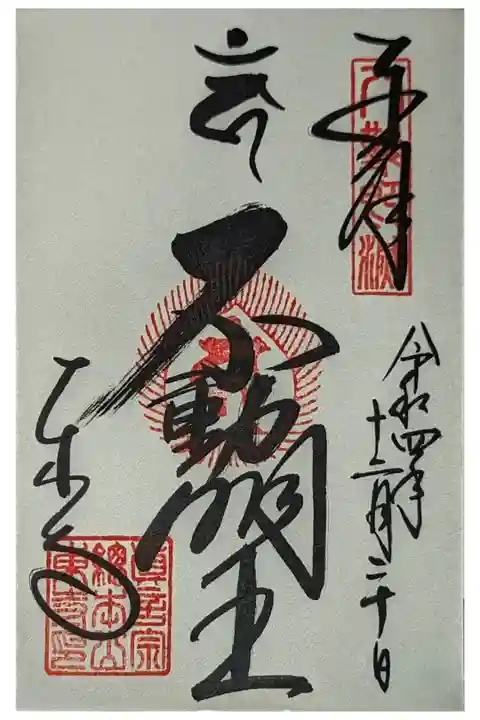 奉拝
令和四年
十二月二十日
不動明王
東寺
眞言宗
總本山
東寺印